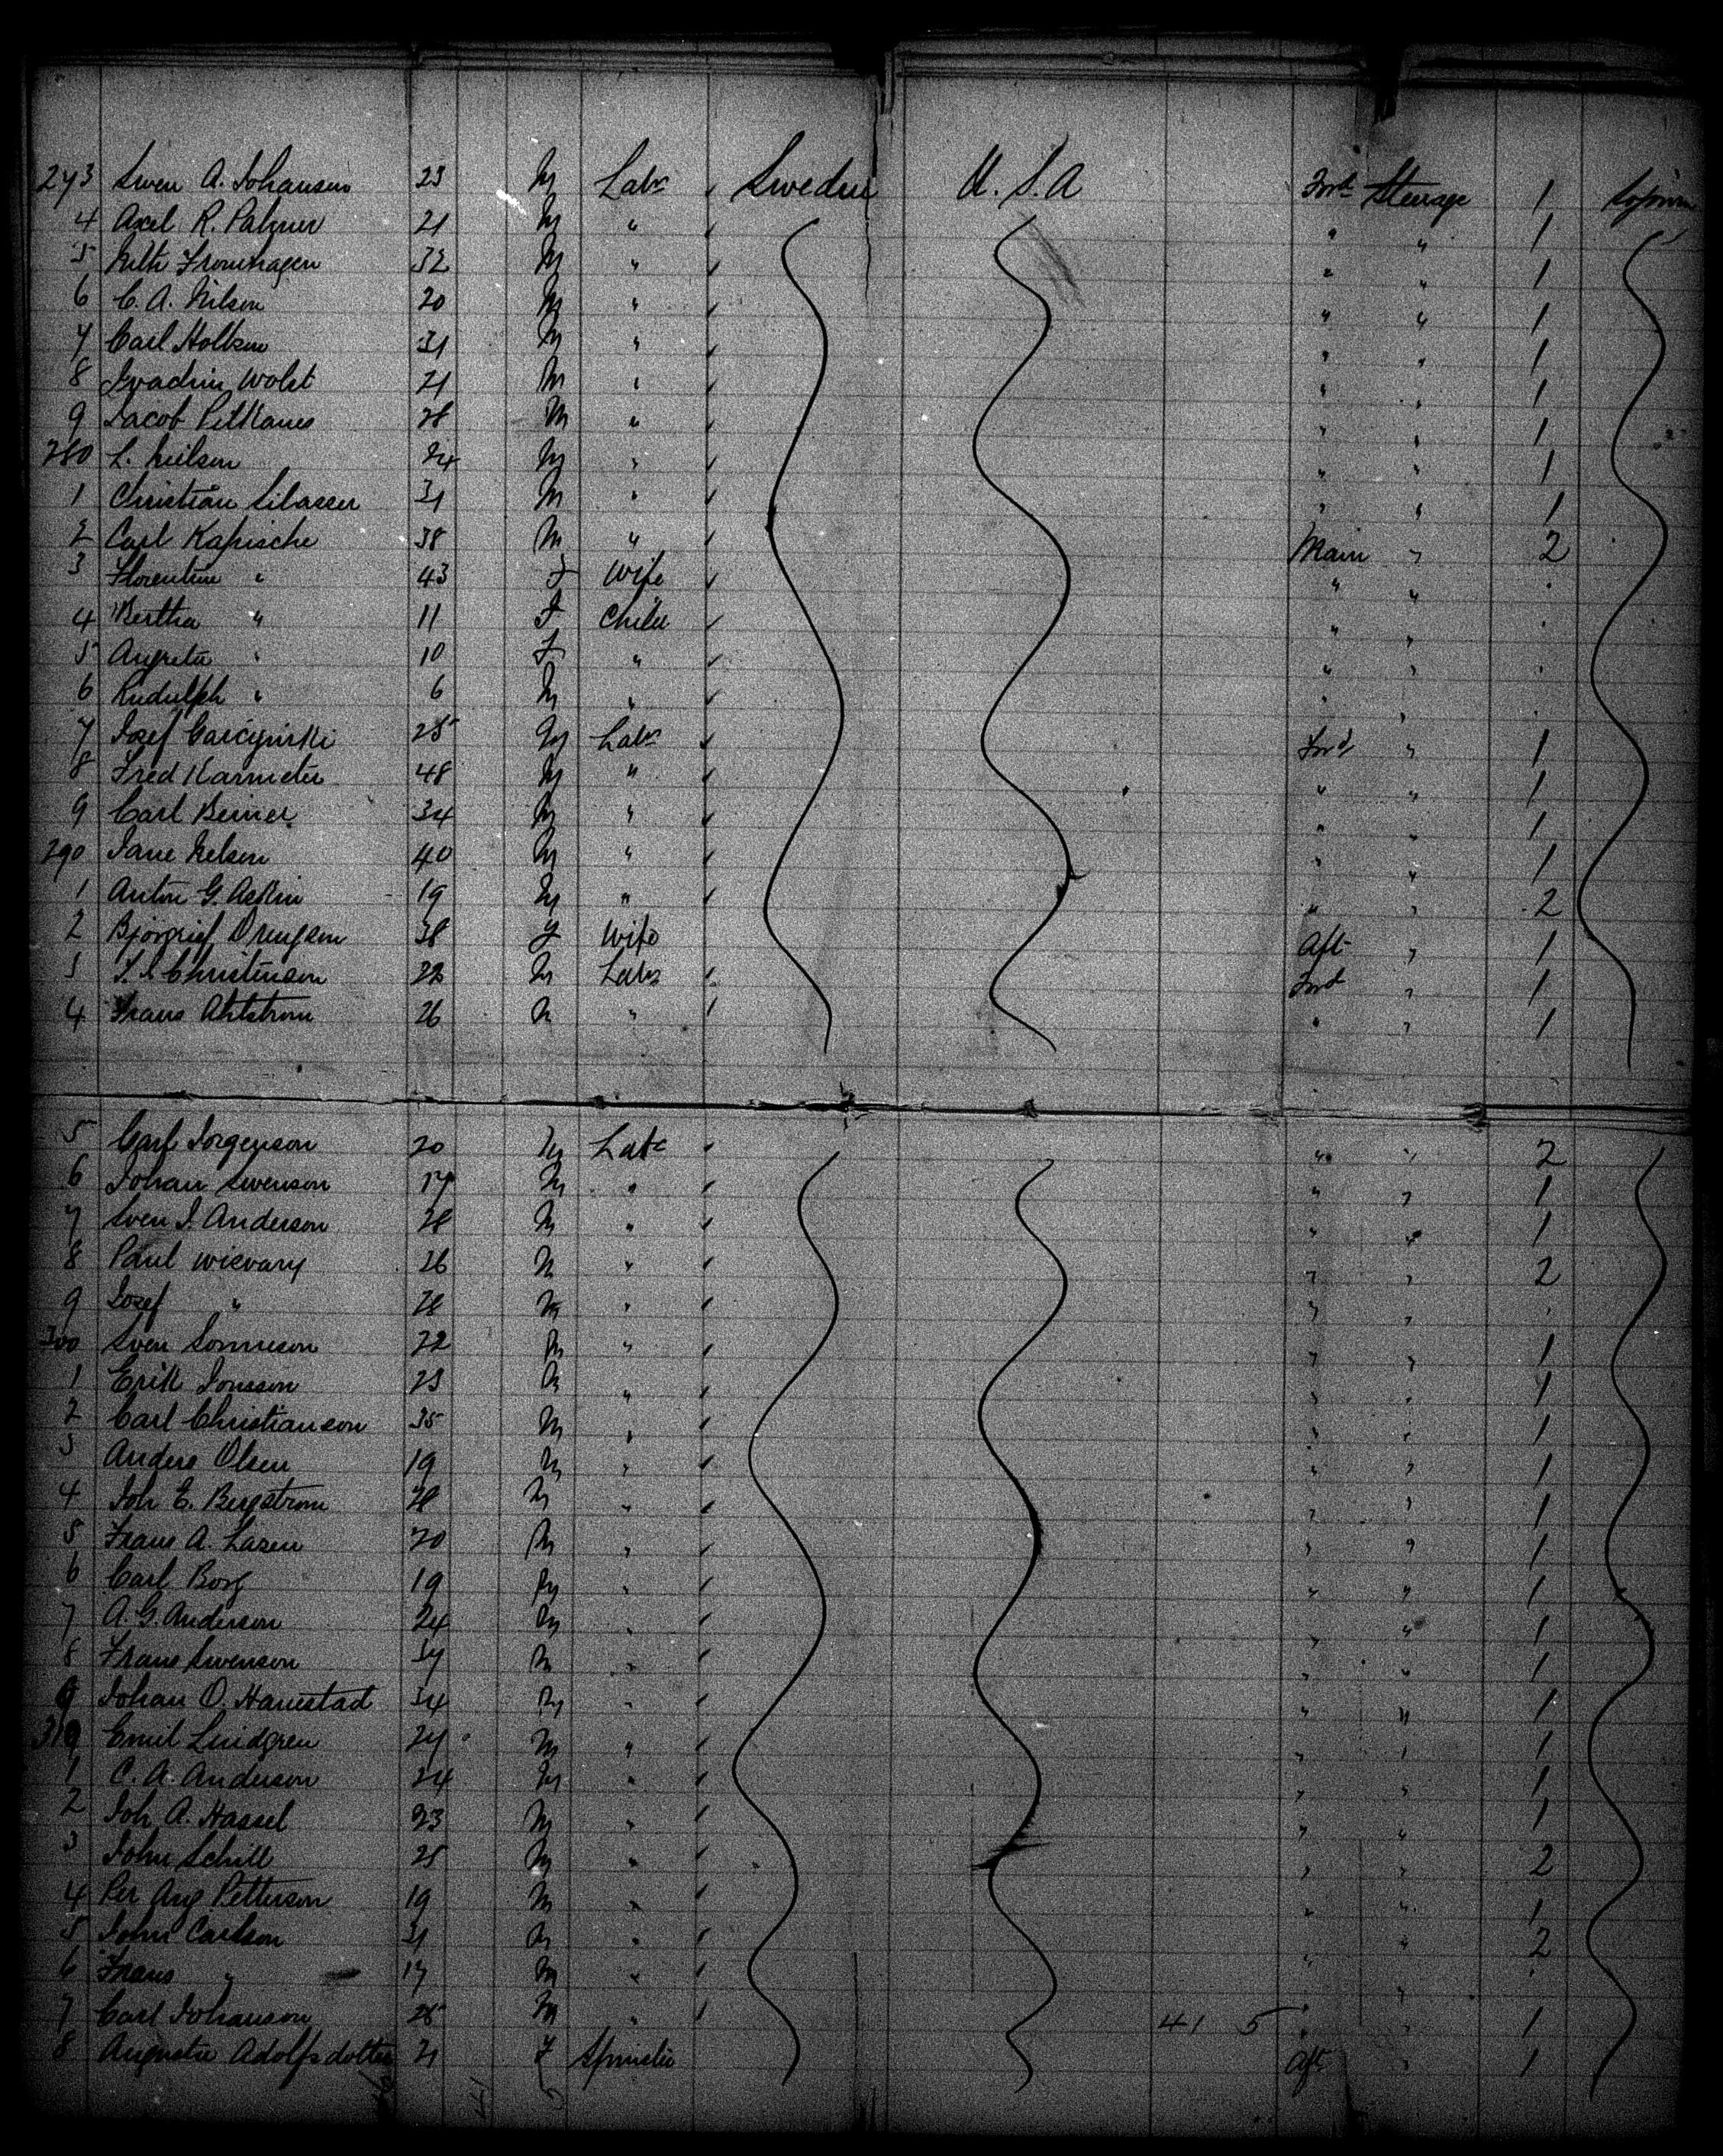 273 Swen A. Johansen 23 M Labr Sweden U.S.A Ford Steerage 1 Sojourn
4 Axel R. Palmer 21 M " " " 1
5 32 M " " " 1
6 C. A. Nilson 20 M " " " 1
7 Carl Holtzen 31 M " " " 1
8 Wolet 21 M " " " 1
9 Jacob 28 M " " " 1
280 L. Neilson 24 M " " " 1
1 Christian 31 M " " " 1
2 Carl Kapische 38 M " Main " 2
3 Florentine " 43 F Wife " "
4 Bertha " 11 F Child " "
5 " 10 F " " "
6 Rudulph " 6 M " " "
7 Josef 25 M Labr Ford " 1
8 Fred Karmeter 48 M " " " 1
9 Carl Berner 34 M " " " 1
290 Jane Nelson 40 M " " " 1
1 Anton G. 19 M " " " 2
2 38 F Wife Aft " 1
3 Christenson 22 M Labr Ford " 1
4 Frans Ahlstrom 26 M " " " 1
5 Carl Jorgenson 20 M Labr " " 2
6 Johan Swenson 17 M " " " 1
7 Sven J. Anderson 28 M " " " 1
8 Paul Wievary 26 M " " " 2
9 Josef " 28 M " " "
300 Sven 22 M " " " 1
1 Erik Jonsson 23 M " " " 1
2 Carl Christianson 35 M " " " 1
3 Anders Olsen 19 M " " " 1
4 Joh E. Bergstrom 28 M " " " 1
5 Frans A. Lasen 20 M " " " 1
6 Carl Borg 19 M " " " 1
7 A. G. Anderson 24 M " " " 1
8 Frans Swenson 37 M " " " 1
9 Johan O. Hanestad 34 M " " " 1
310 Emil Lindgren 27 M " " " 1
1 C. A. Anderson 24 M " " " 1
2 Joh A. Hassel 23 M " " " 1
3 John Schill 25 M " " " 2
4 Per Aug Petterson 19 M " " " 1
5 John Carlson 31 M " " " 2
6 Frans " 17 M " " "
7 Carl Johanson 26 M " 41 5 " " 1
8 Augusta Adolfsdotter 21 F Spinster Aft " 1
41 5